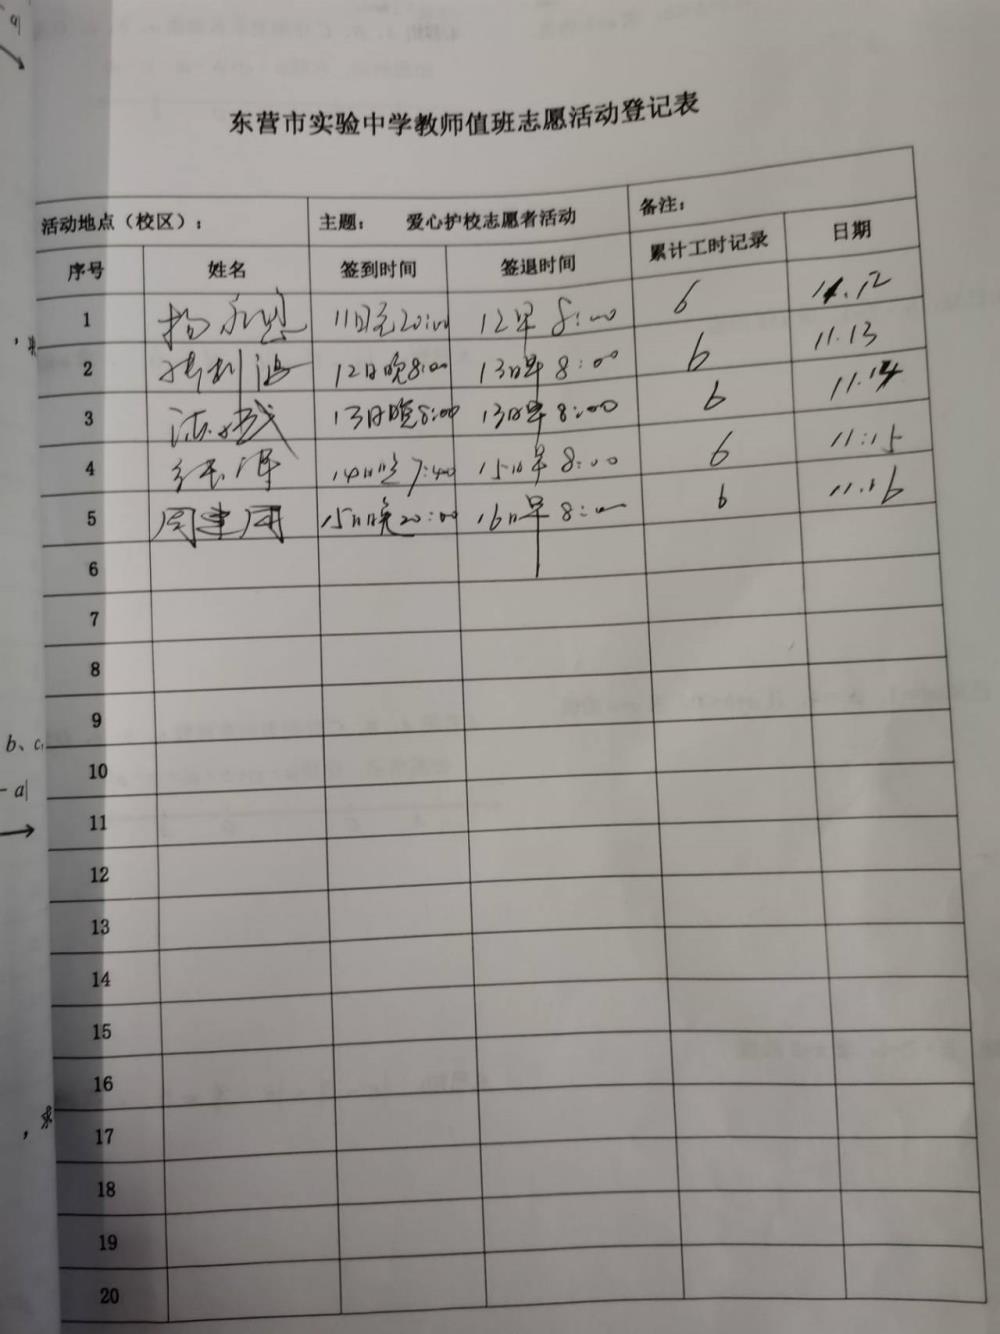 东营市实验中学教师值班志愿活动登记表
活动地点（校区）： 主题： 爱心护校志愿者活动 备注：
序号 姓名 签到时间 签退时间 累计工时记录 日期
1 11日晚20:00 12早8:00 6 11.12
2 12日晚8:00 13日早8:00 6 11.13
3 13日晚8:00 13日早8:00 6 11.14
4 14日晚7:40 15日早8:00 6 11.15
5 周建国 15日晚20:00 16日早8:00 6 11.16
6
7
8
9
10
11
12
13
14
15
16
17
18
19
20
b、c,
- a|
，求